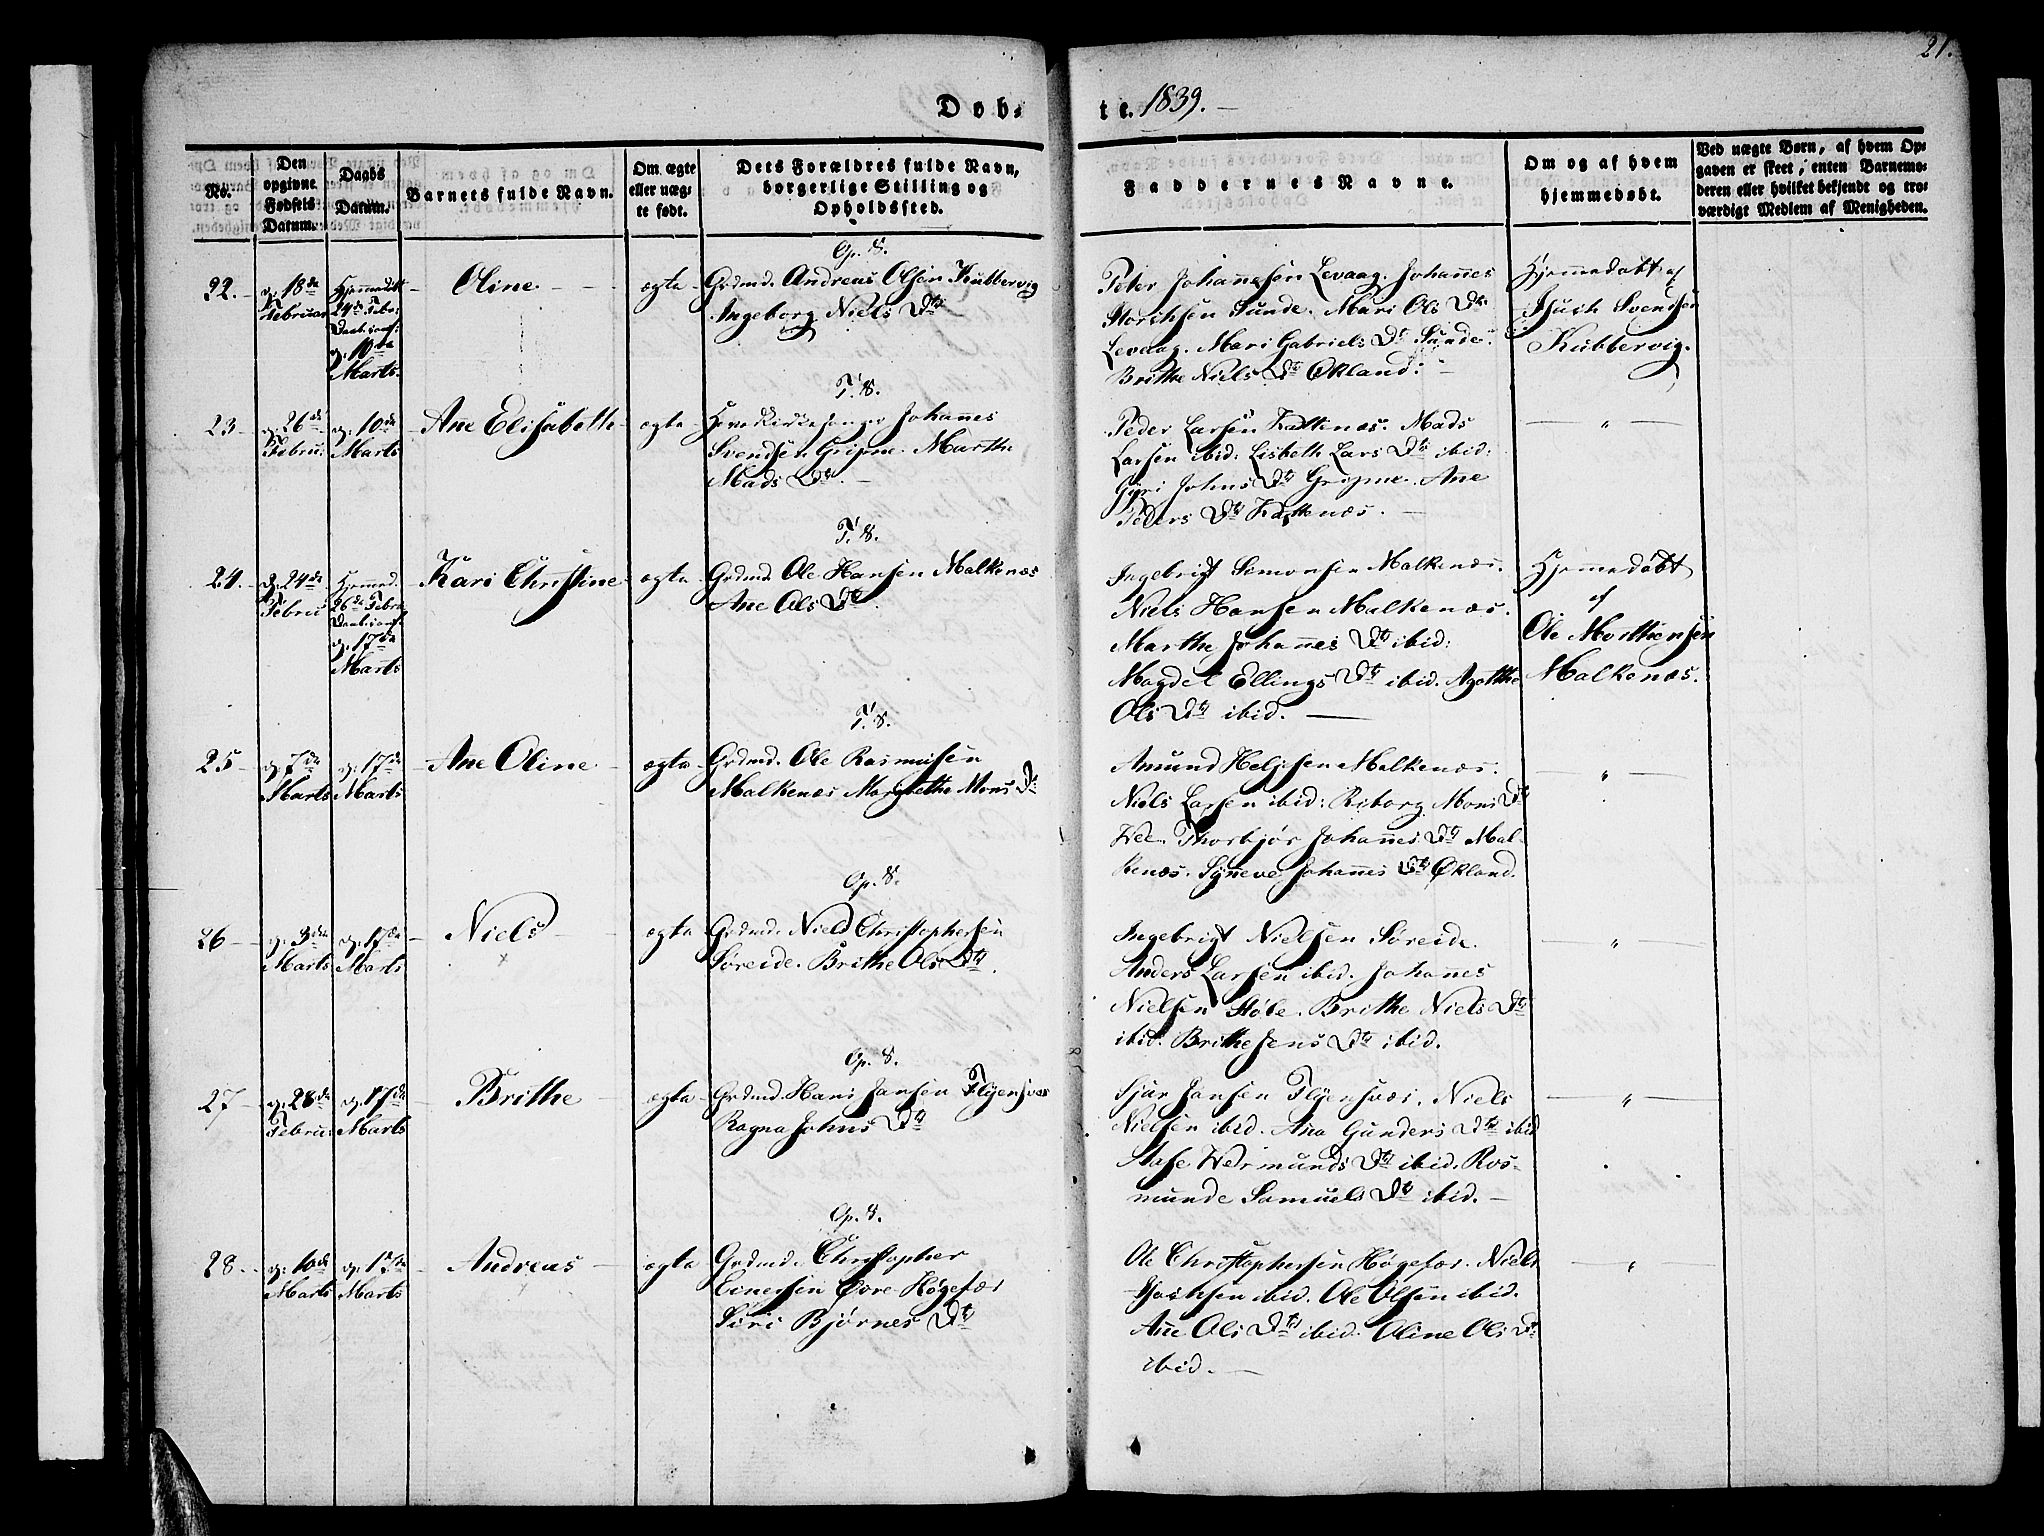 21.
Døb-
te. 1839.
No.
Den opgivne Fødsels Datum.
Daabs Datum.
Barnets fulde Navn.
Om ægte eller uægte født.
Dets Forældres fulde Navn, borgerlige Stilling og Opholdssted.
Faddernes Navne.
Om og af hvem hjemmedøbt.
Ved uægte Børn, af hvem Opgaven er skeet, enten Barnemoderen eller hvilket bekjendt og troværdigt Medlem af Menigheden.
Op. S.
22. d. 18de Februar
Hjemmedøbt 24de Febr: d. 10de Marts.
Oline
ægte
Grdmd. Andreas Olsen Kubbervig
Ingeborg Niels Dtr
Peter Johannesen Levaag. Johannes
Sunde. Mari Ols Dtr
Levaag. Mari Gabriels Dtr Sunde.
Brithe Niels Dtr Økland.
Hjemmedøbt af
Svensen
Kubbervig.
T. S.
23 d. 26de Febru:
d. 10de Marts
Añe Elisabeth
ægte
Kirkesanger Johañes
Svendsen Gripne. Marthe
Mads Dtr.
Peder Larsen Kattenæs. Mads
Larsen ibid: Lisbeth Lars Dtr ibid:
Gyri Johns Dtr Gripne. Ane
Peders Dtr Kattenæs.
"
T. S.
24. d. 24de Febru
Hjemmed. 26de Febr. d. 17de Marts
Kari Christine
ægte
Grdmd Ole Hansen Malkenæs
Añe Ols Dtr.
Ingebrigt Simonsen Malkenæs.
Niels Hansen Malkenæs.
Marthe Johañes Dtr ibid:
Magdel Ellings Dtr ibid. Agatthe
Ols Dtr ibid.
Hjemmedøbt
af
Ole Morthensen
Malkenæs.
T. S.
25 d. 7de Marts
d. 17de Marts
Añe Oline
ægte
Grdmd. Ole Rasmusen
Malkenæs Margrethe Mons Dtr
Amund Helgesen Malkenæs.
Niels Larsen ibid: Riborg Mons Dtr
Wee. Thorbjør Johañes Dtr Mal-
kenæs. Syñeve Johañes Dtr Økland.
"
Op. S.
26 d. 3die Marts
d. 17de Marts
Niels
x
ægte
Grdmd. Niels Christophersen
Søreide. Brithe Ols Dtr.
Ingebrigt Nielsen Søreide.
Anders Larsen ibid. Johañes
Nielsen Støle. Brithe Niels Dtr
ibid. Brithe Jens Dtr ibid.
"
Op. S.
27 d. 28de Februar
d. 17de Marts
Brithe
ægte
Grdmd. Hans Jansen Flyensvær
Ragna Johns Dtr
Sjur Jansen Flyensvær. Niels
Nielsen ibid. Ana Gunders Dtr ibid
Aase Wermunds Dtr ibid. Ros-
munde Samuels Dtr ibid.
"
Op. S.
28. d. 10de Marts
d. 17de Marts
Andreas
ægte
Grdmd. Christopher
Einersen Øvre Høgefær
Siri Bjørnes Dtr
Ole Christophersen Høgefær. Niels
ibid. Ole Olsen ibid.
Añe Ols Dtr ibid. Oline Ols Dtr
ibid.
"